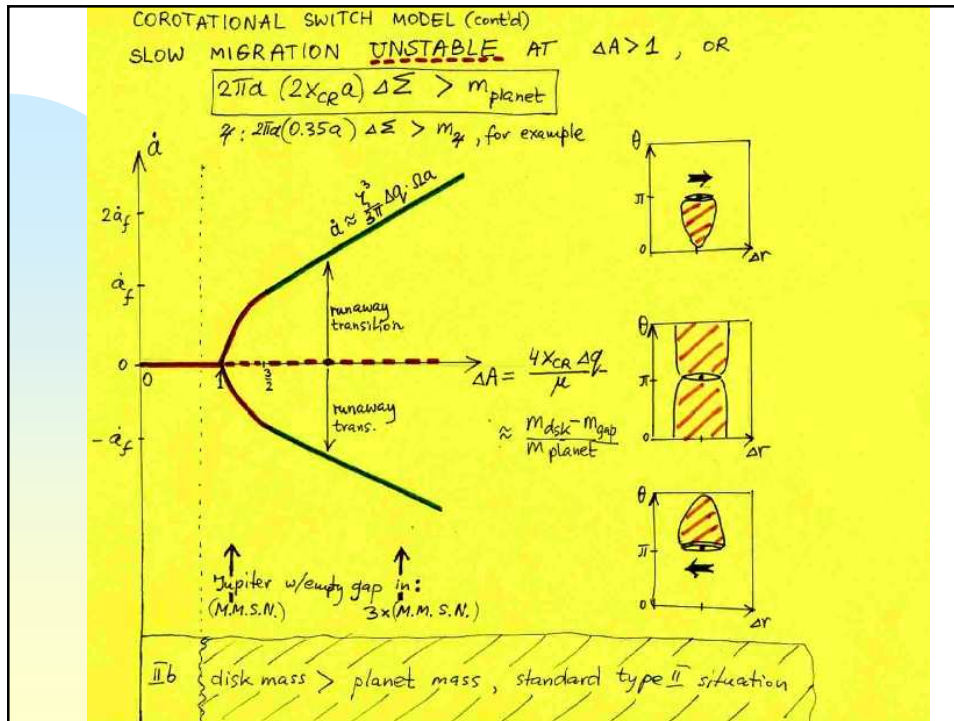 COROTATIONAL SWITCH MODEL (cont'd)
SLOW MIGRATION UNSTABLE AT ΔA > 1 , OR
2πa (2x_CR a) ΔΣ > m_planet
♃ : 2πa(0.35a) ΔΣ > m_♃ , for example
ȧ
2ȧ_f
ȧ_f
0
-ȧ_f
ȧ ≈ Δq · Ωa
runaway
transition
runaway
trans.
0
1
3/2
ΔA = 4x_CR Δq / μ
≈ m_dsk - m_gap / m_planet
θ
π
0
Δr
θ
π
0
Δr
θ
π
0
Δr
Jupiter w/empty gap in:
(M.M.S.N.) 3x(M.M.S.N.)
IIb disk mass > planet mass , standard type II situation